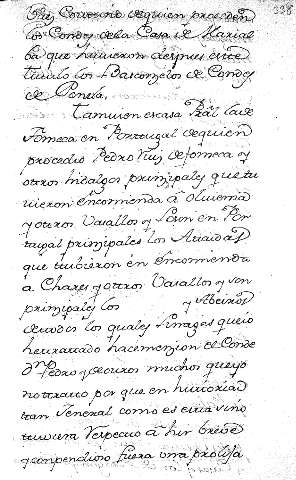 328
de quien proceden
los Condes de la Casa de Marial
ba que huvieron despues este
titulo los Basconzelos de Condes
de Penela.
Tamvien es casa Rl. la de
Fonseca en Portugal de quien
procedio Pedro Ruiz de fonseca y
otros hidalgos principales que tu
vieron en encomienda a Olivenza
y otros Vasallos y son en Por
tugal principales los Ataides
que tubieron en encomienda
a Chaves y otros Vasallos y son
principales los y Ribeiros
los quales linages que io
he tratado hace menzion el Conde
Dn. Pedro y de otros muchos que yo
no trato por que en historia
tan General como es esta sino
tuviera respecto a ser breve
y conpendioso fuera una prolija